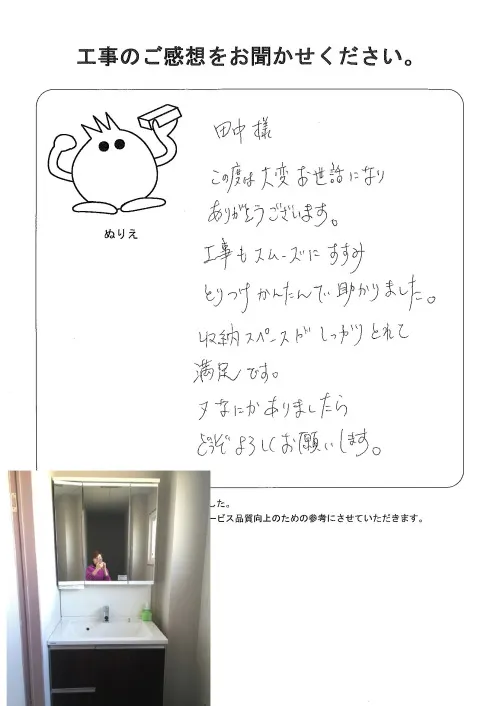 工事のご感想をお聞かせください。
ぬりえ
田中様
この度は大変お世話になり
ありがとうございます。
工事もスムーズにすすみ
とりつけかんたんで助かりました。
収納スペースがしっかりとれて
満足です。
又なにかありましたら
どうぞよろしくお願いします。
した。
ービス品質向上のための参考にさせていただきます。